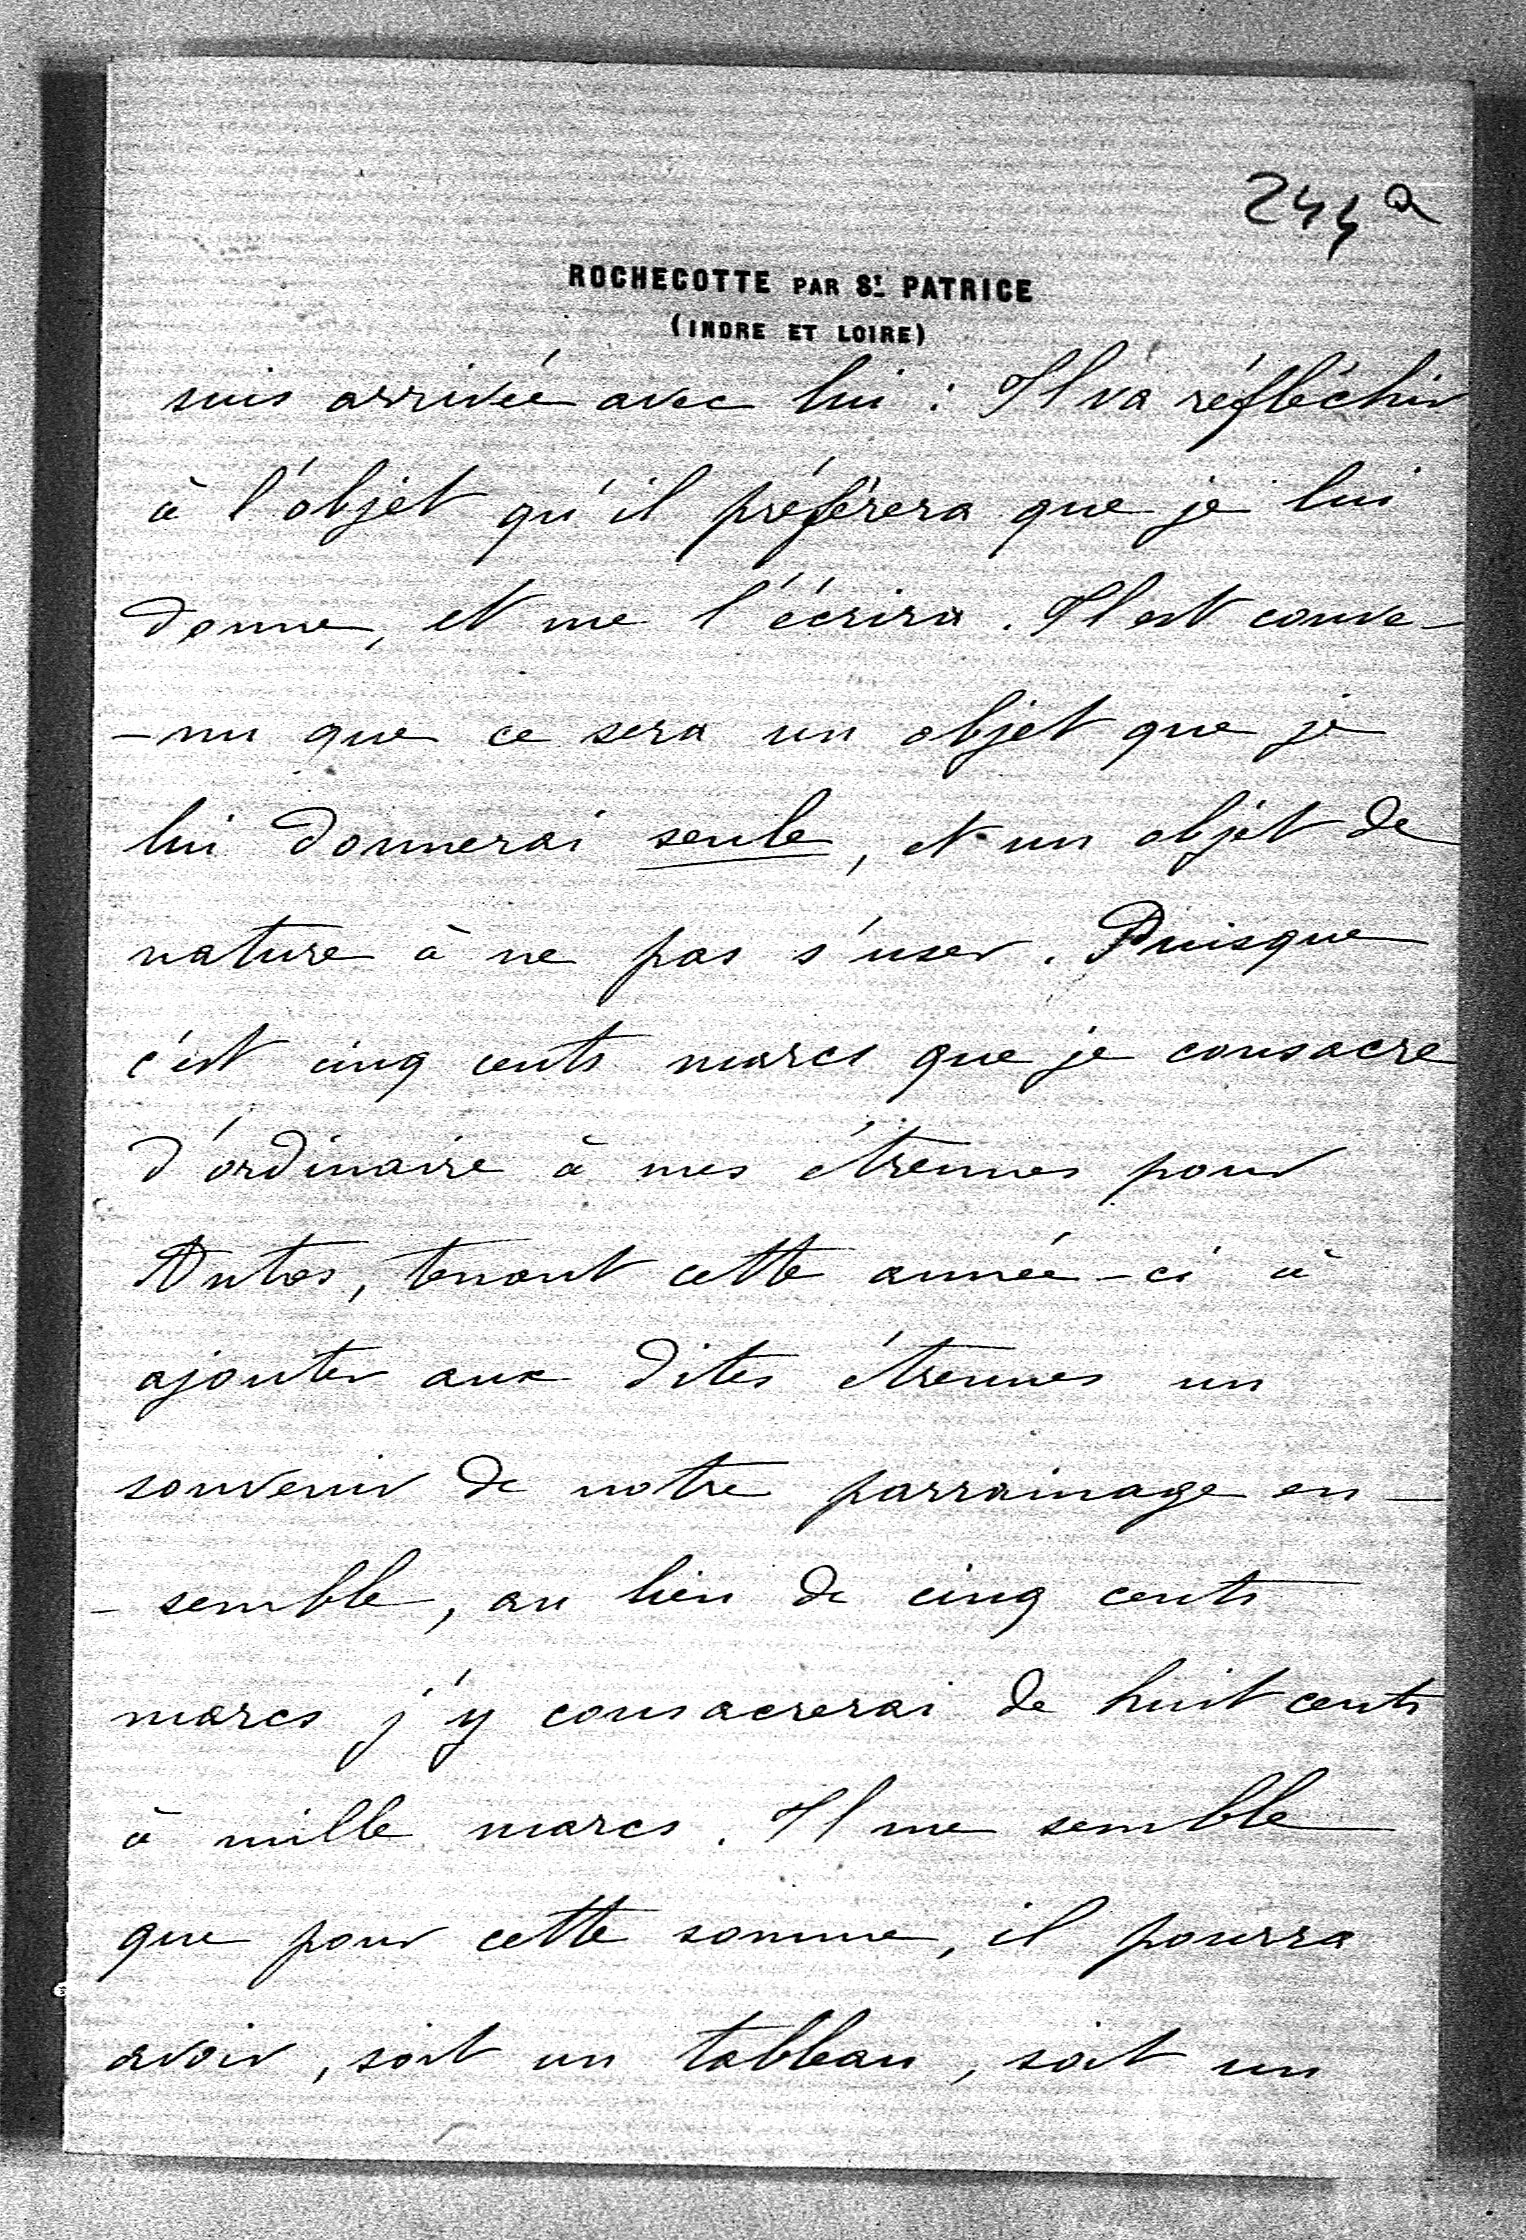 244a
ROCHECOTTE PAR St. PATRICE
(INDRE ET LOIRE)
suis arrivée avec lui : Il va réfléchir
à l'objet qu'il préférera que je lui
donne, et me l'écrira. Il est conve-
-nu que ce sera un objet que je
lui donnerai seule, et un objet de
nature à ne pas s'user. Puisque
c'est cinq cents marcs que je consacre
d'ordinaire à mes étrennes pour
tenant cette année-ci à
ajouter aux dites étrennes un
souvenir de notre parrainage en-
-semble, au lieu de cinq cents
marcs j'y consacrerai de huit cents
à mille marcs. Il me semble
que pour cette somme, il pourra
avoir, soit un tableau, soit un